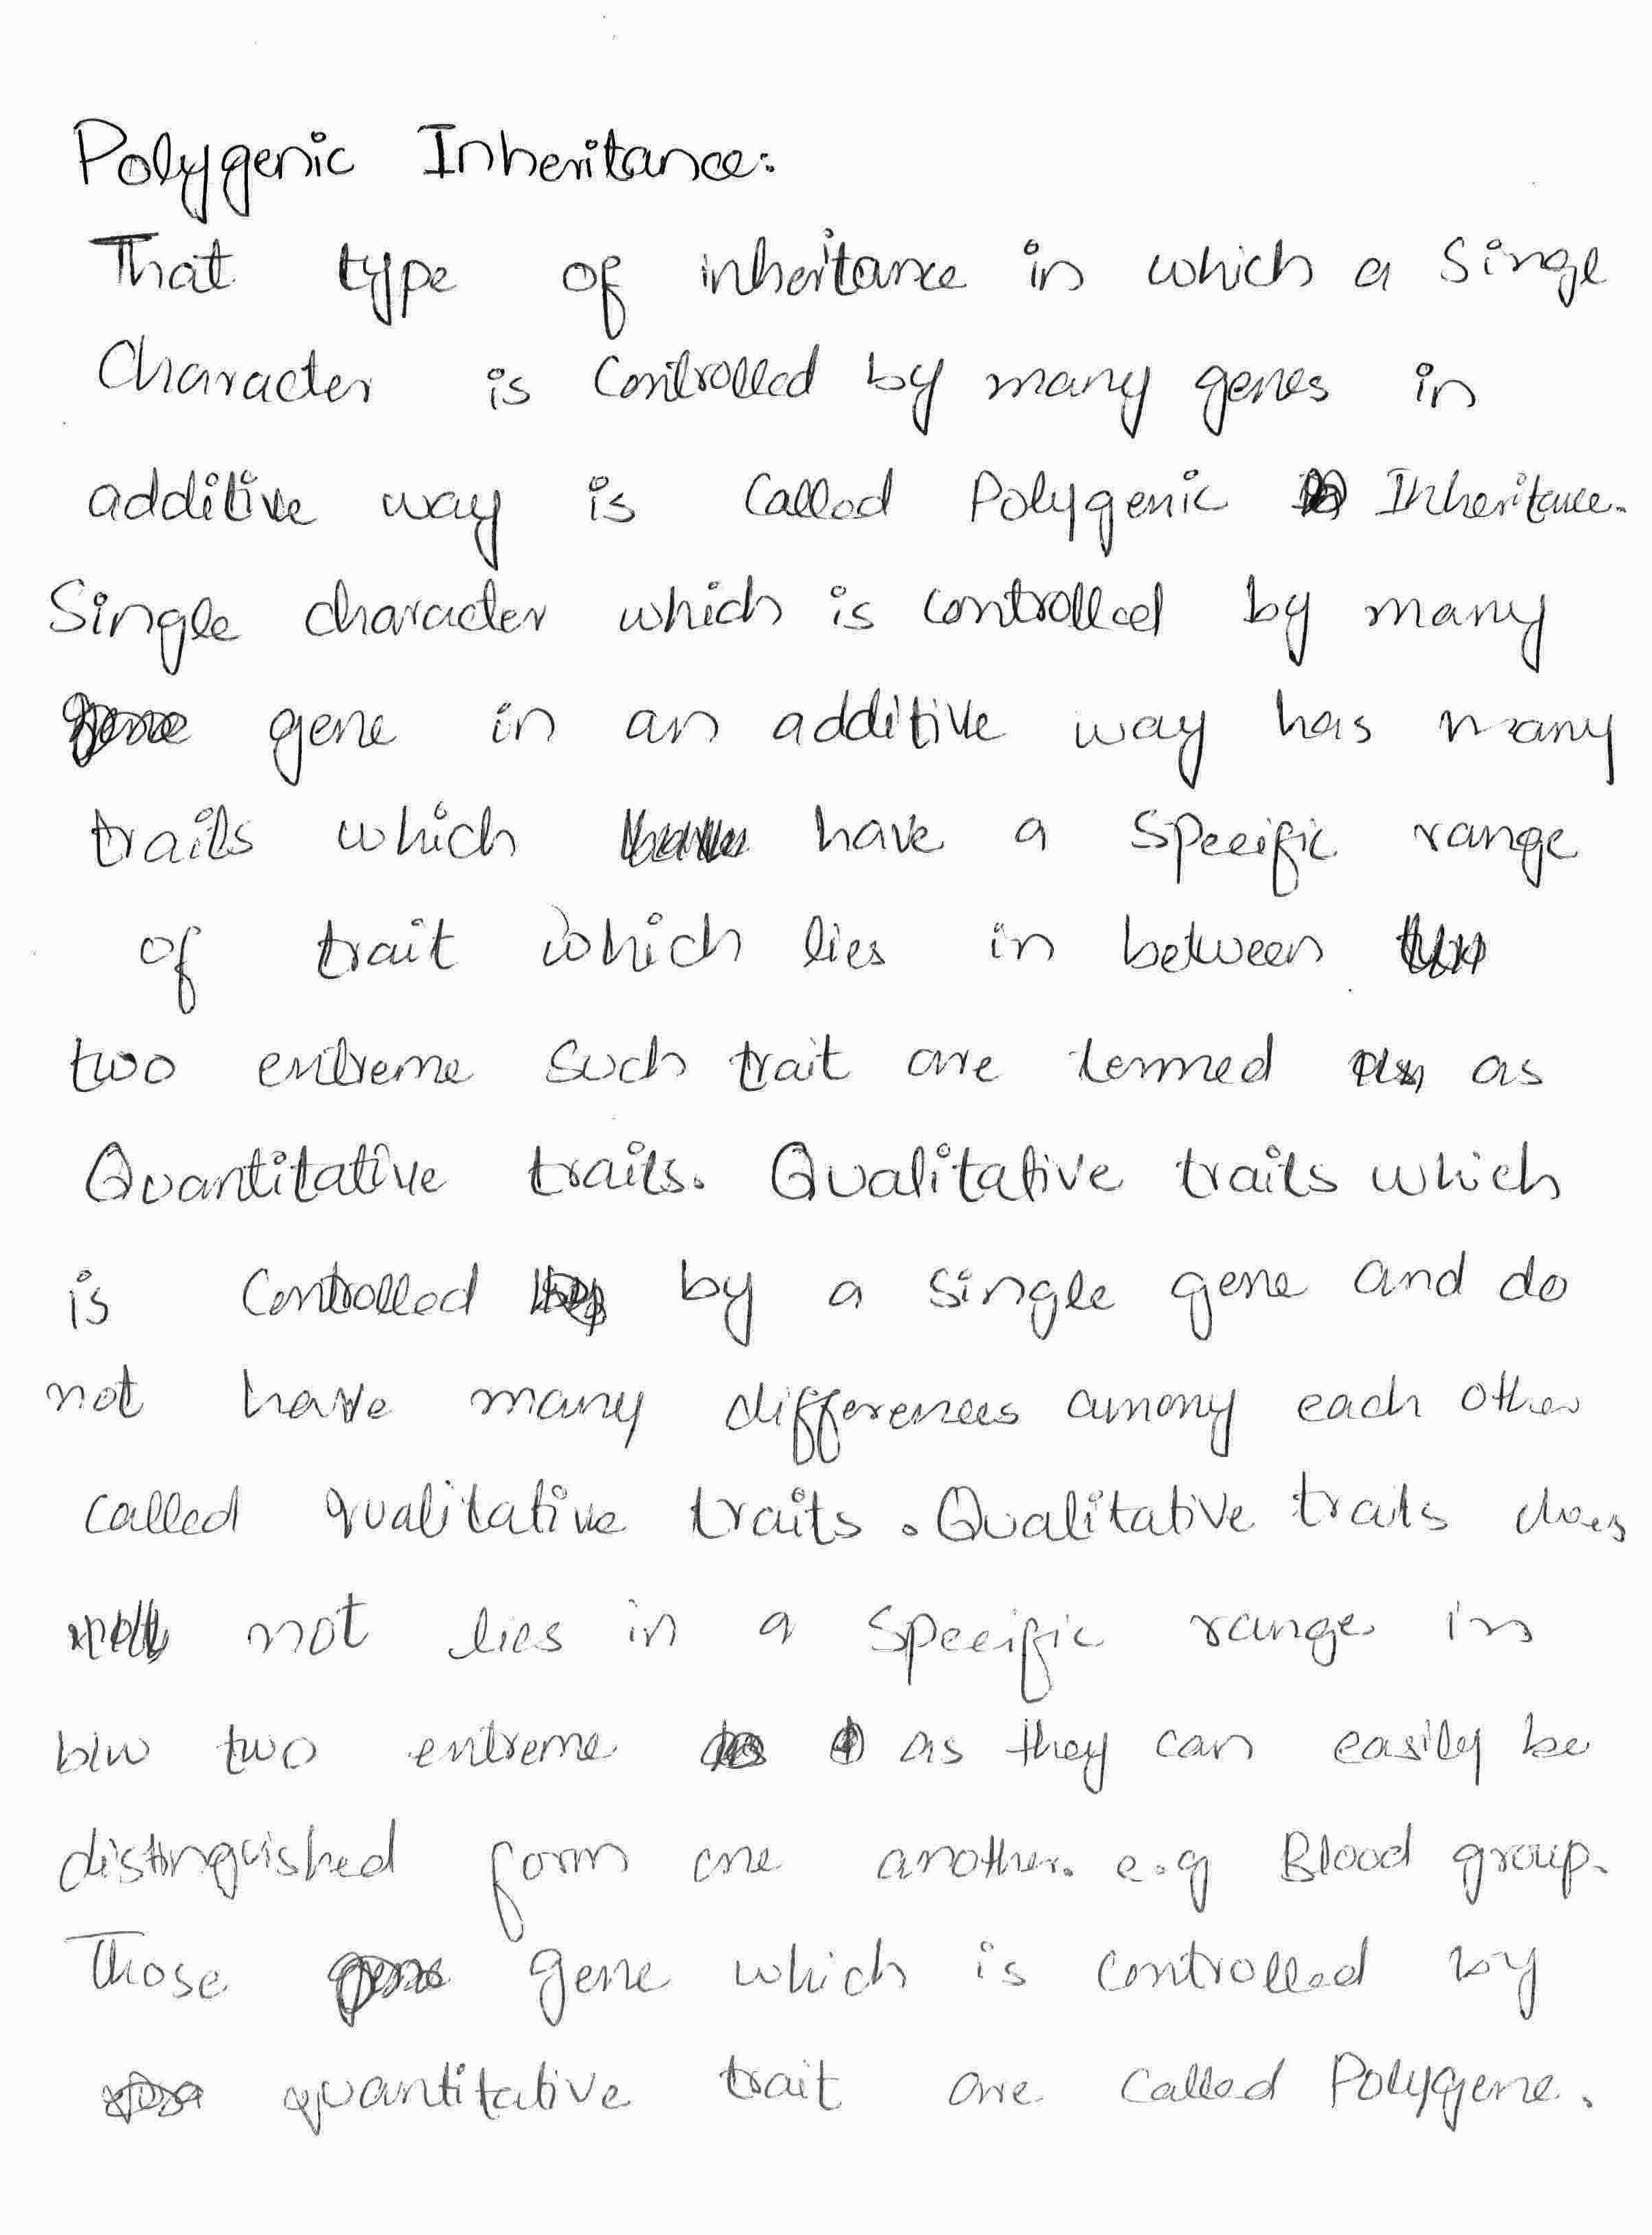 Polygenic Inheritance:
That type of inheritance in which a Singl
Character is Controlled by many genes in
additive way is Called Polygenic Inheritance.
Single character which is controlled by many
gene in an additive way has many
traits which have a Specific range
of trait which lies in between
two extreme Such trait are termed as
Quantitative traits. Qualitative traits which
is Controlled by a single gene and do
not have many differences among each other
called qualitative traits. Qualitative traits does
not lies in a Specific range in
b/w two extreme as they can easily be
distinguished form one another. e.g Blood group.
Those gene which is controlled by
quantitative trait are Called Polygene.